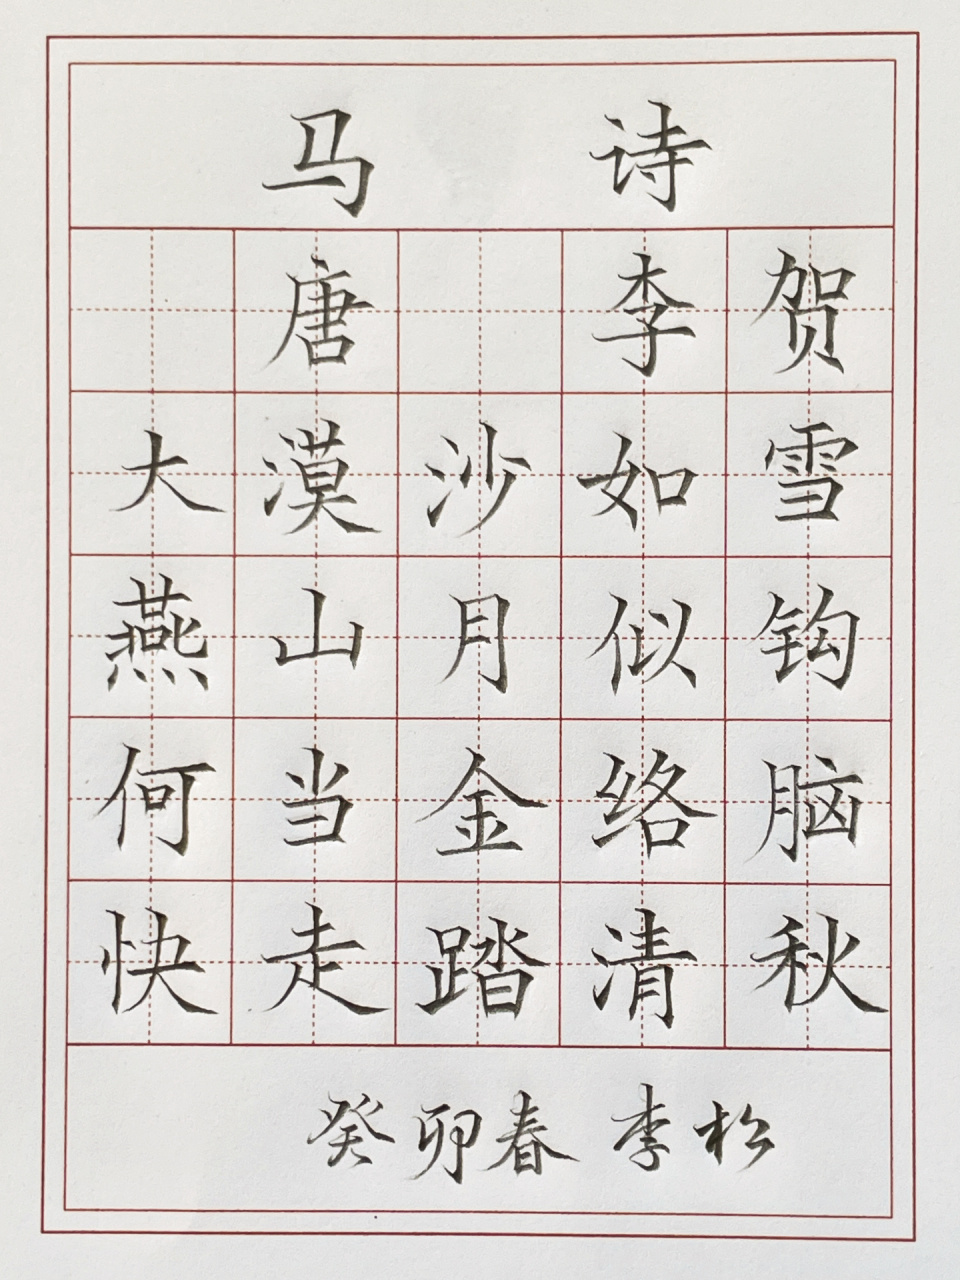 马诗
唐 李贺
大漠沙如雪
燕山月似钩
何当金络脑
快走踏清秋
癸卯春 李松